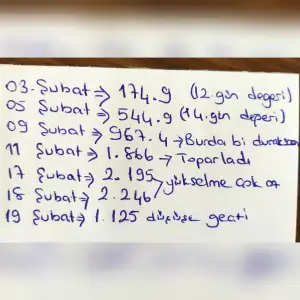 03. Şubat ⇒ 174.9 (12.gün değeri)
05 Şubat ⇒ 544.9 (14.gün değeri)
09 Şubat ⇒ 967.4 → Burda bi
11 Şubat ⇒ 1.866 → Toparladı
17 Şubat ⇒ 2.195
yükselme çok az
18 Şubat ⇒ 2.246
19 Şubat ⇒ 1.125 düşüşe geçti